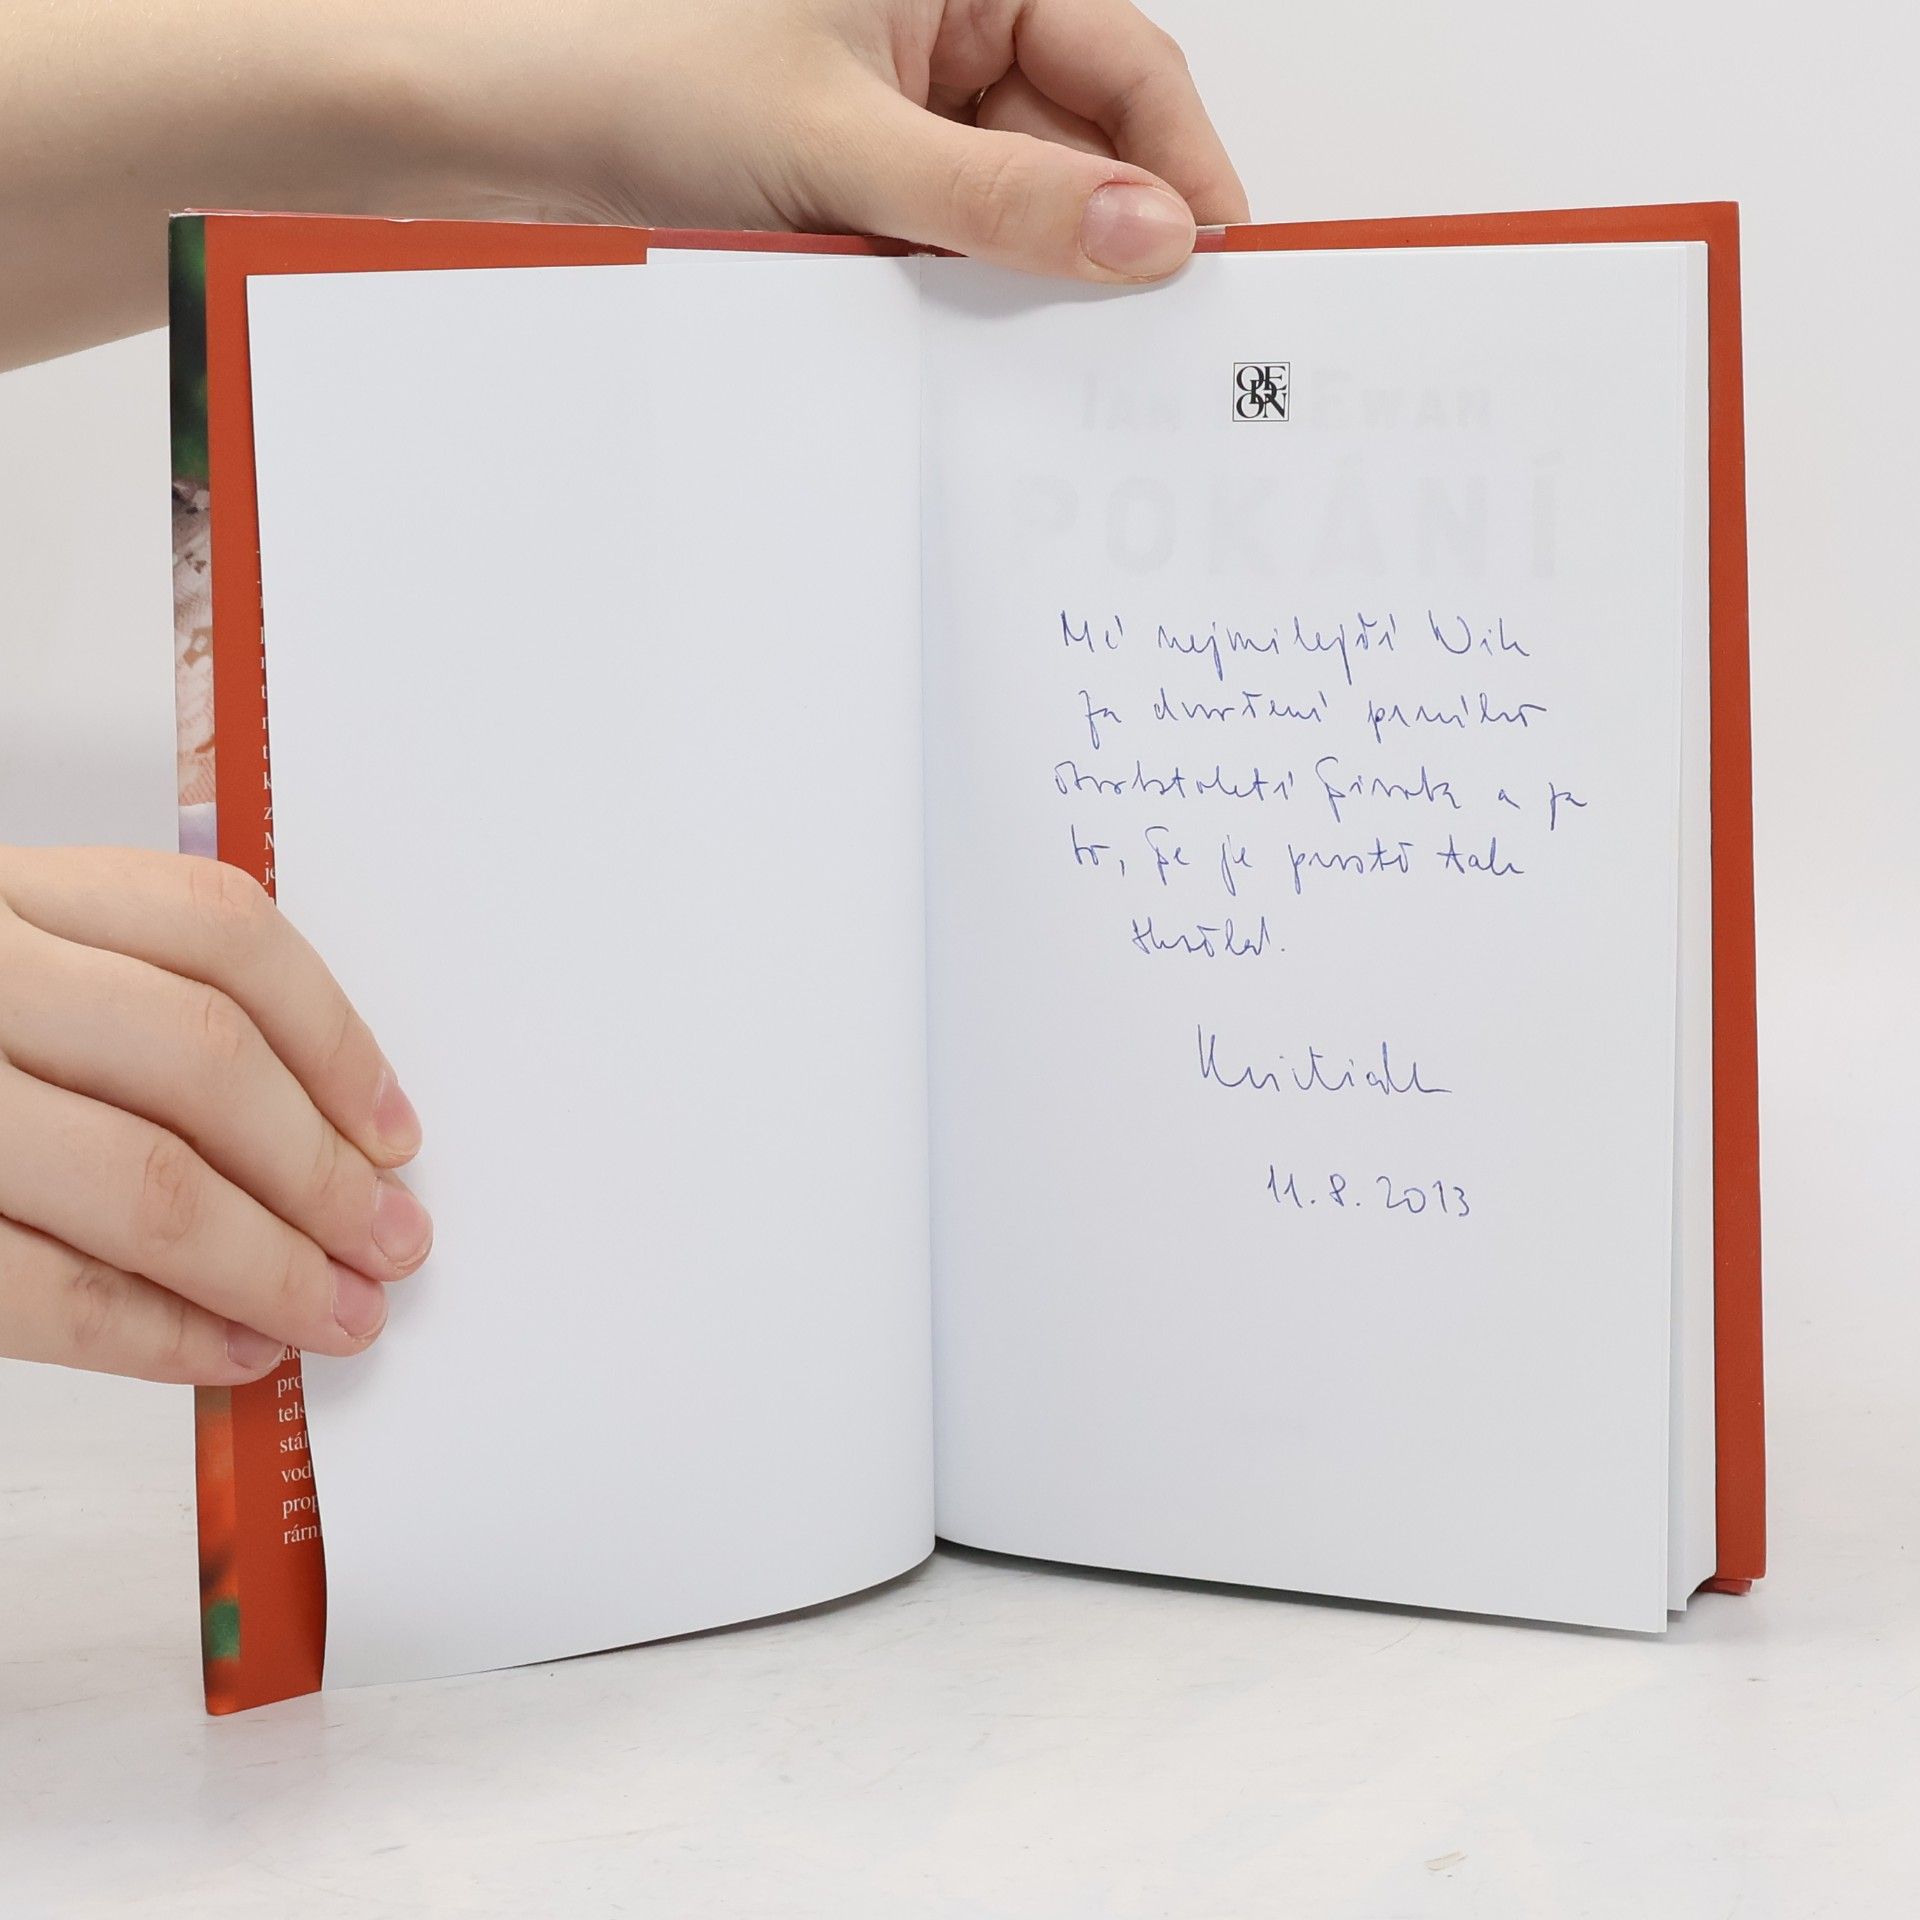 OEDEON
IAN McEWAN
POKÁNÍ
Mé nejmilejší Nik
za dovršení prvního
čtvrtstoletí života a za
to, že je prostě tak
skvělá.
Kristián
11. 8. 2013
t
k
z
M
je
pro
tels
stál
vod
prop
rárn